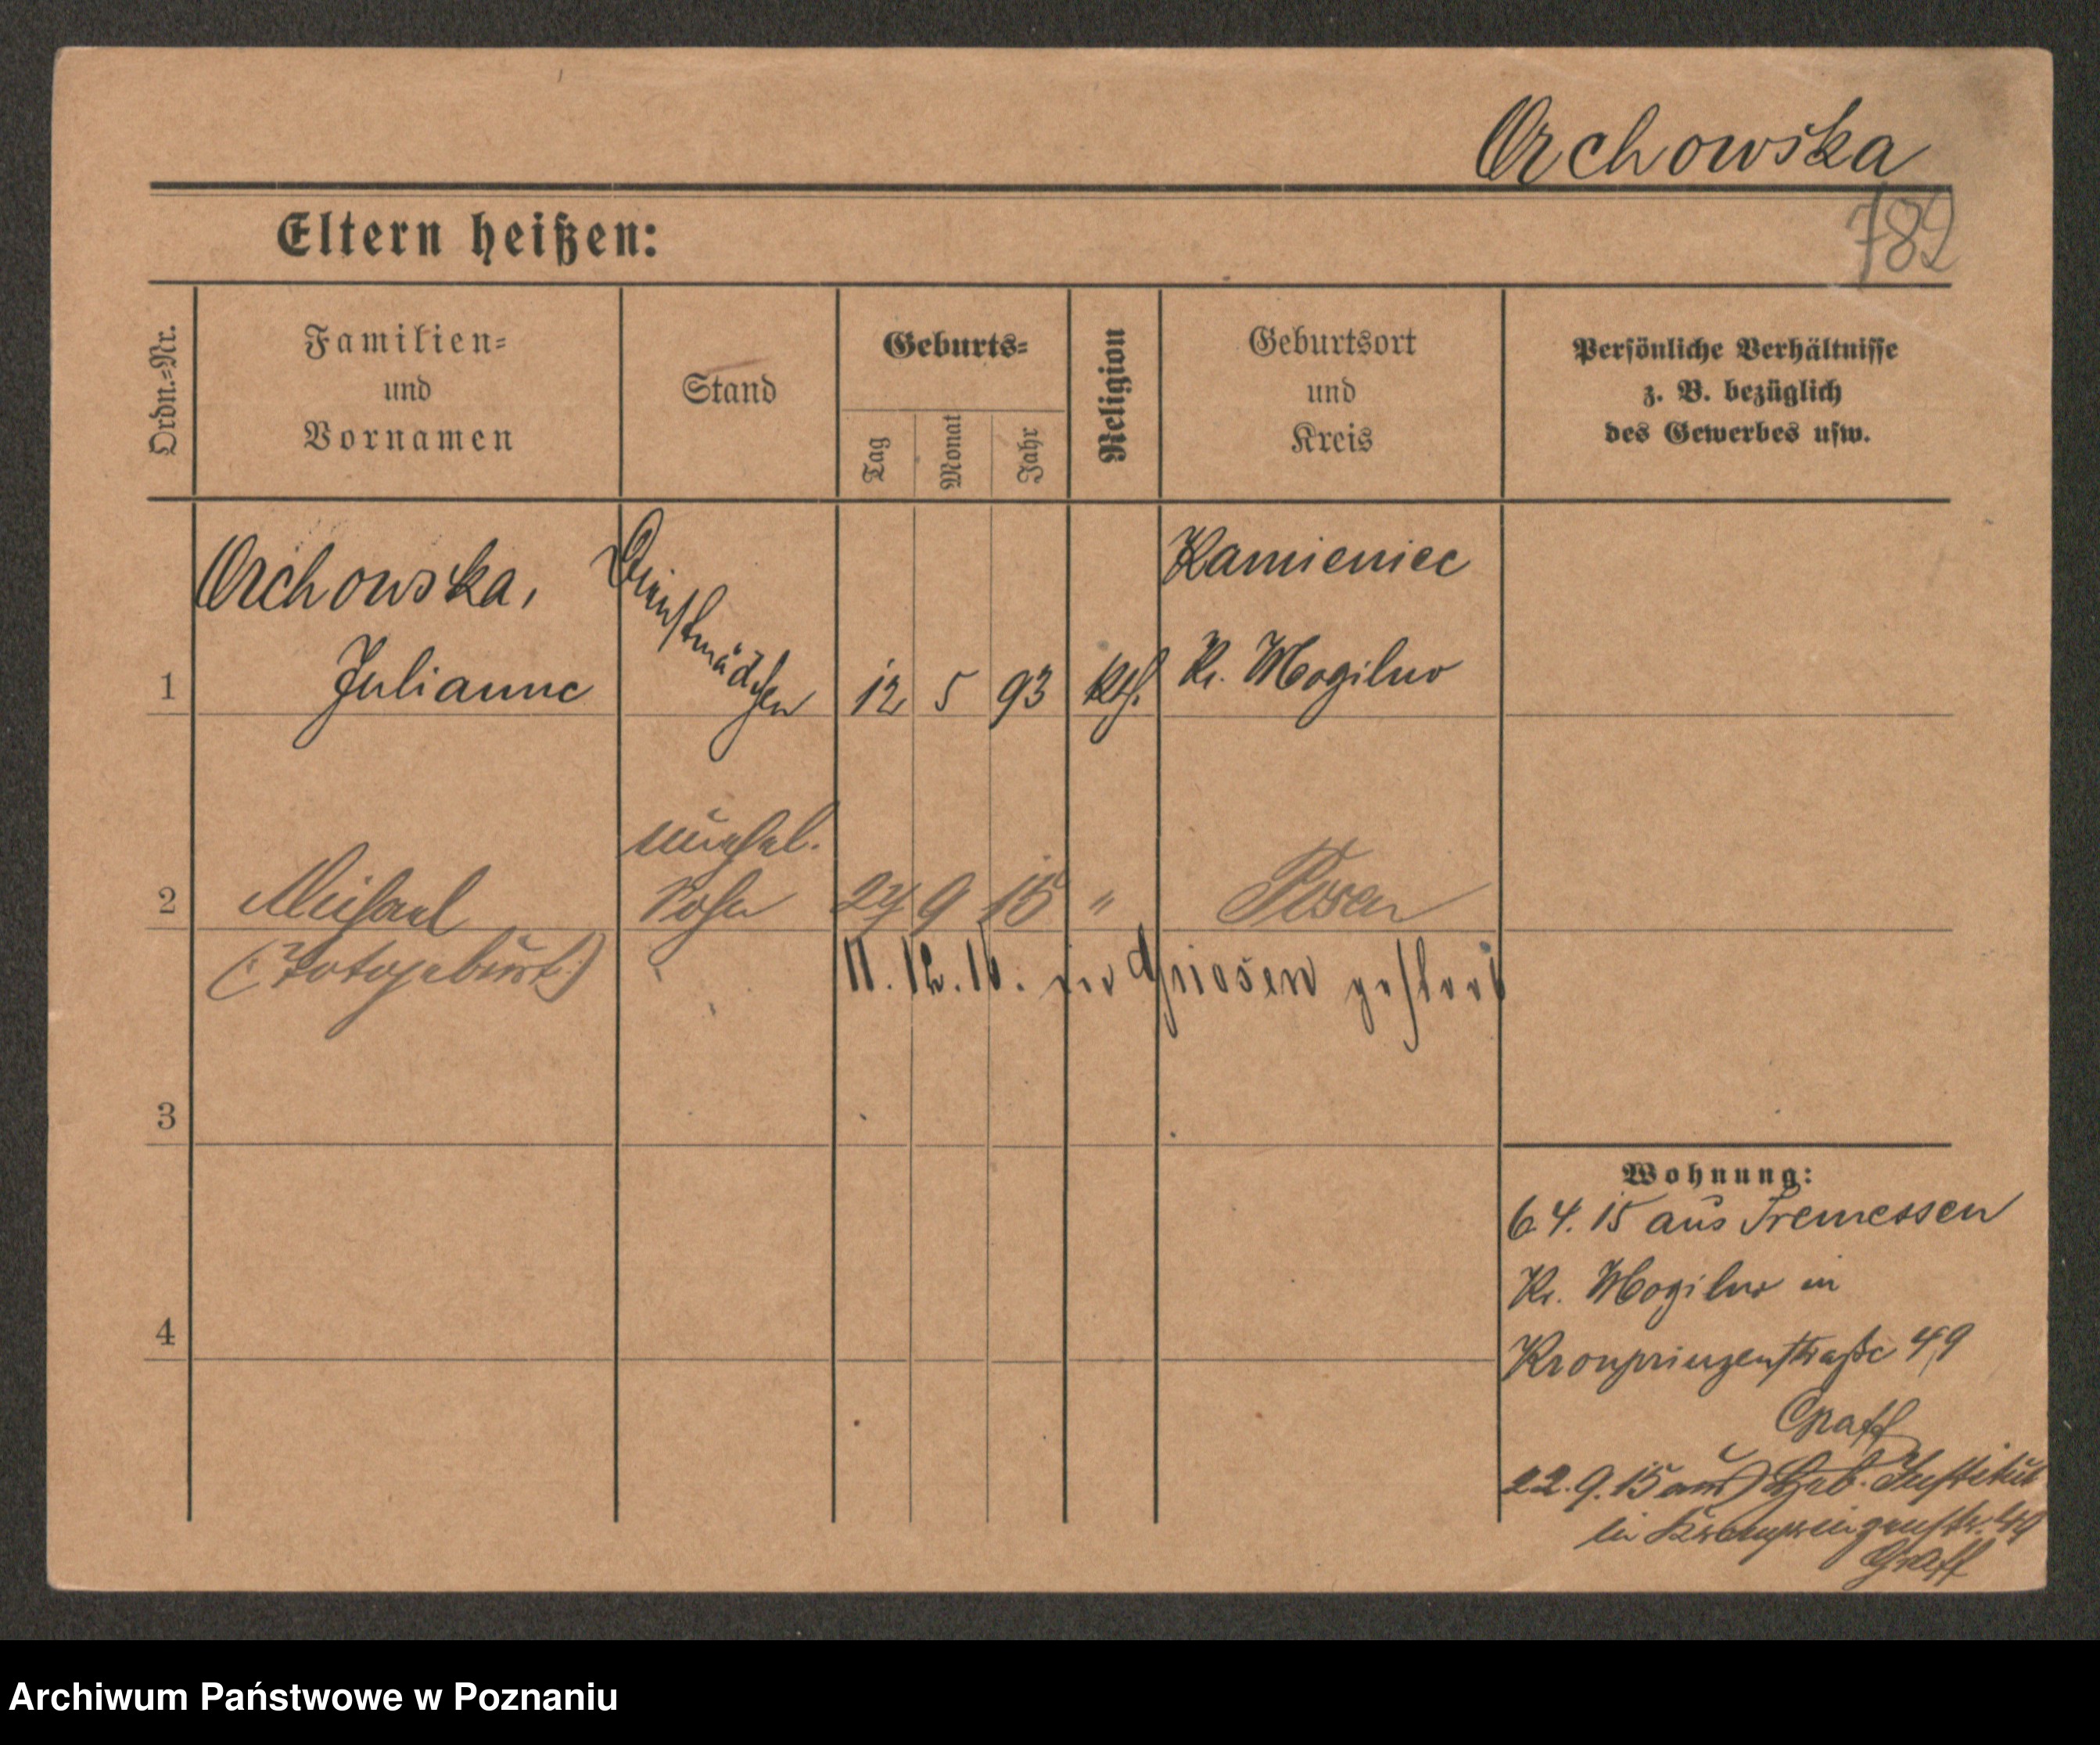 Orchowska
782
Eltern heißen:
Ordn.=Nr.
Familien=
und
Vornamen
Stand
Geburts=
Tag
Monat
Jahr
Religion
Geburtsort
und
Kreis
Persönliche Verhältnisse
z. B. bezüglich
des Gewerbes usw.
1
Orchowska,
Julianne
Dienstmädchen
12 5 93 kth.
Kamieniec
Kr. Mogilno
2
Michael
(Totgeburt)
unehel.
Sohn
9 15 "
Posen
11. 12. 16. in Gnesen gestorb
3
4
Wohnung:
6.4.15 aus Tremessen
Kr. Mogilno in
Kronprinzenstraße 49
Graff
22.9.15 aus Heb. Institut
in Kronprinzenstr. 49
Graff
Archiwum Państwowe w Poznaniu